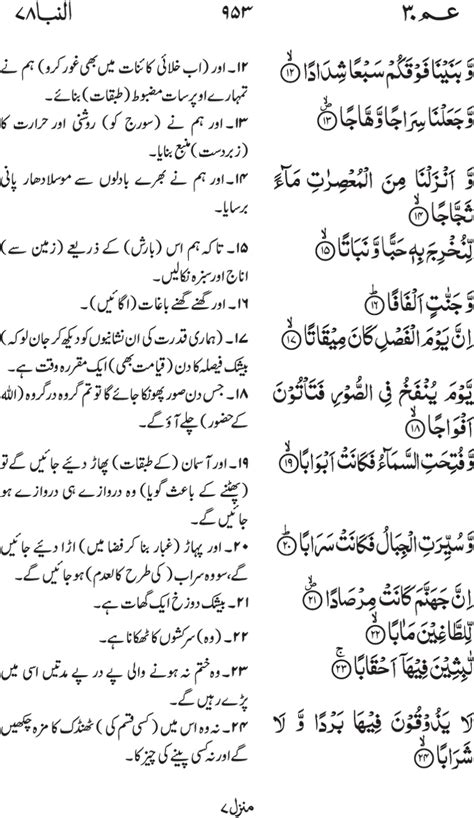 عـمّ ۳۰ ۹۵۳ النبا ۷۸
وَّ بَنَيْنَا فَوْقَكُمْ سَبْعًا شِدَادًا ۙ﴿۱۲﴾
۱۲۔ اور (اب خلائی کائنات میں بھی غور کرو) ہم نے
تمہارے اوپر سات مضبوط (طبقات) بنائے۔
وَّ جَعَلْنَا سِرَاجًا وَّهَّاجًا ۪ۙ﴿۱۳﴾
۱۳۔ اور ہم نے (سورج کو) روشنی اور حرارت کا
(زبردست) منبع بنایا۔
وَّ اَنْزَلْنَا مِنَ الْمُعْصِرٰتِ مَآءً
ثَجَّاجًا ۙ﴿۱۴﴾
۱۴۔ اور ہم نے بھرے بادلوں سے موسلادھار پانی
برسایا۔
لِّنُخْرِجَ بِهٖ حَبًّا وَّ نَبَاتًا ۙ﴿۱۵﴾
۱۵۔ تاکہ ہم اس (بارش) کے ذریعے (زمین سے)
اناج اور سبزہ نکالیں۔
وَّ جَنّٰتٍ اَلْفَافًا ؕ﴿۱۶﴾
۱۶۔ اور گھنے گھنے باغات (اگائیں)۔
اِنَّ يَوْمَ الْفَصْلِ كَانَ مِيْقَاتًا ۙ﴿۱۷﴾
۱۷۔ (ہماری قدرت کی ان نشانیوں کو دیکھ کر جان لو کہ)
بیشک فیصلہ کا دن (قیامت بھی) ایک مقررہ وقت ہے۔
يَّوْمَ يُنْفَخُ فِي الصُّوْرِ فَتَاْتُوْنَ
اَفْوَاجًا ۙ﴿۱۸﴾
۱۸۔ جس دن صور پھونکا جائے گا تو تم گروہ در گروہ (اللہ
کے حضور) چلے آؤ گے۔
وَّ فُتِحَتِ السَّمَآءُ فَكَانَتْ اَبْوَابًا ۙ﴿۱۹﴾
۱۹۔ اور آسمان (کے طبقات) پھاڑ دیئے جائیں گے تو
(پھٹنے کے باعث گویا) وہ دروازے ہی دروازے ہو
جائیں گے۔
وَّ سُيِّرَتِ الْجِبَالُ فَكَانَتْ سَرَابًا ؕ﴿۲۰﴾
۲۰۔ اور پہاڑ (غبار بنا کر فضا میں) اڑا دیئے جائیں
گے، سو وہ سراب (کی طرح کالعدم) ہو جائیں گے۔
اِنَّ جَهَنَّمَ كَانَتْ مِرْصَادًا ۪ۙ﴿۲۱﴾
۲۱۔ بیشک دوزخ ایک گھات ہے۔
لِّلطَّاغِيْنَ مَاٰبًا ۙ﴿۲۲﴾
۲۲۔ (وہ) سرکشوں کا ٹھکانا ہے۔
لّٰبِثِيْنَ فِيْهَاۤ اَحْقَابًا ۚ﴿۲۳﴾
۲۳۔ وہ ختم نہ ہونے والی پے در پے مدتیں اسی میں
پڑے رہیں گے۔
لَا يَذُوْقُوْنَ فِيْهَا بَرْدًا وَّ لَا
شَرَابًا ۙ﴿۲۴﴾
۲۴۔ نہ وہ اس میں (کسی قسم کی) ٹھنڈک کا مزہ چکھیں
گے اور نہ کسی پینے کی چیز کا۔
منزل ۷